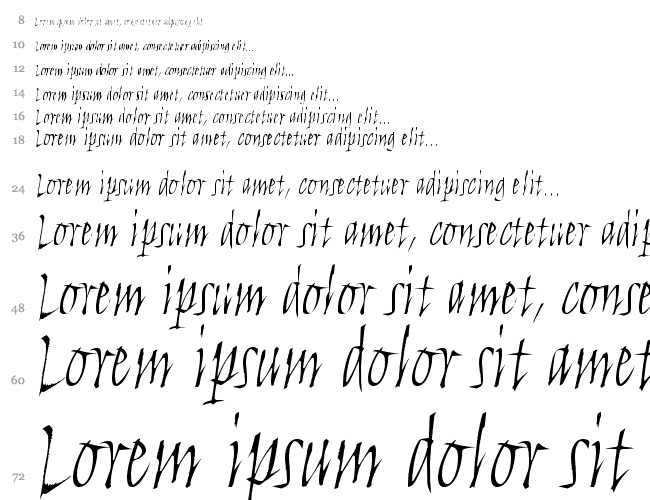 8 Lorem ipsum dolor sit amet, consectetuer adipiscing elit...
10 Lorem ipsum dolor sit amet, consectetuer adipiscing elit...
12 Lorem ipsum dolor sit amet, consectetuer adipiscing elit...
14 Lorem ipsum dolor sit amet, consectetuer adipiscing elit...
16 Lorem ipsum dolor sit amet, consectetuer adipiscing elit...
18 Lorem ipsum dolor sit amet, consectetuer adipiscing elit...
24 Lorem ipsum dolor sit amet, consectetuer adipiscing elit...
36 Lorem ipsum dolor sit amet, consectetuer adip
48 Lorem ipsum dolor sit amet, conse
60 Lorem ipsum dolor sit amet
72 Lorem ipsum dolor sit